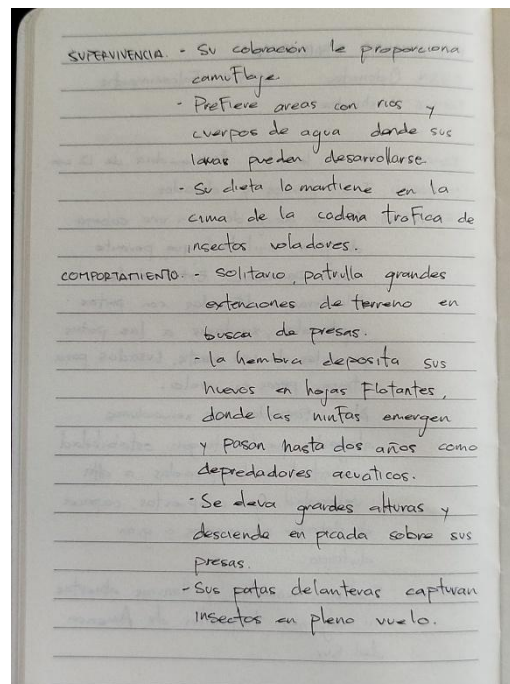 SUPERVIVENCIA. - Su coloración le proporciona
camuflaje
- Prefieve areas con rios y
cuerpos de agua donde sus
lavas pueden desarrollarse.
- Su dieta lo mantiene en la
cima de la cadena trofica de
insectos voladores.
COMPORTAMIENTO. - Solitario, patrulla grandes
extenciones de terreno en
busca de presas.
- la hembra deposita sus
huevos en hojas flotantes,
donde las ninfas emergen
y pasan hasta dos años como
depredadores acuáticos.
- Se eleva grandes alturas y
desciende en picada sobre sus
presas.
- Sus patas delanteras capturan
insectos en pleno vuelo.